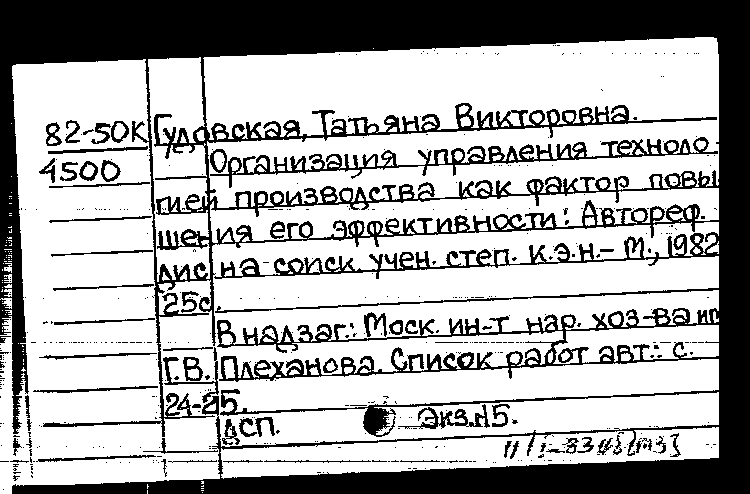 82-50К Гудовская, Татьяна Викторовна.
4500 Организация управления техноло-
гией производства как фактор повы
шения его эффективности: Автореф.
дис на соиск. учен. степ. к.э.н.- М., 1982
25с.
В надзаг.: Моск. ин-т нар. хоз-ва им
Г.В. Плеханова. Список работ авт.: с.
24-25.
ДСП. Экз.№5.